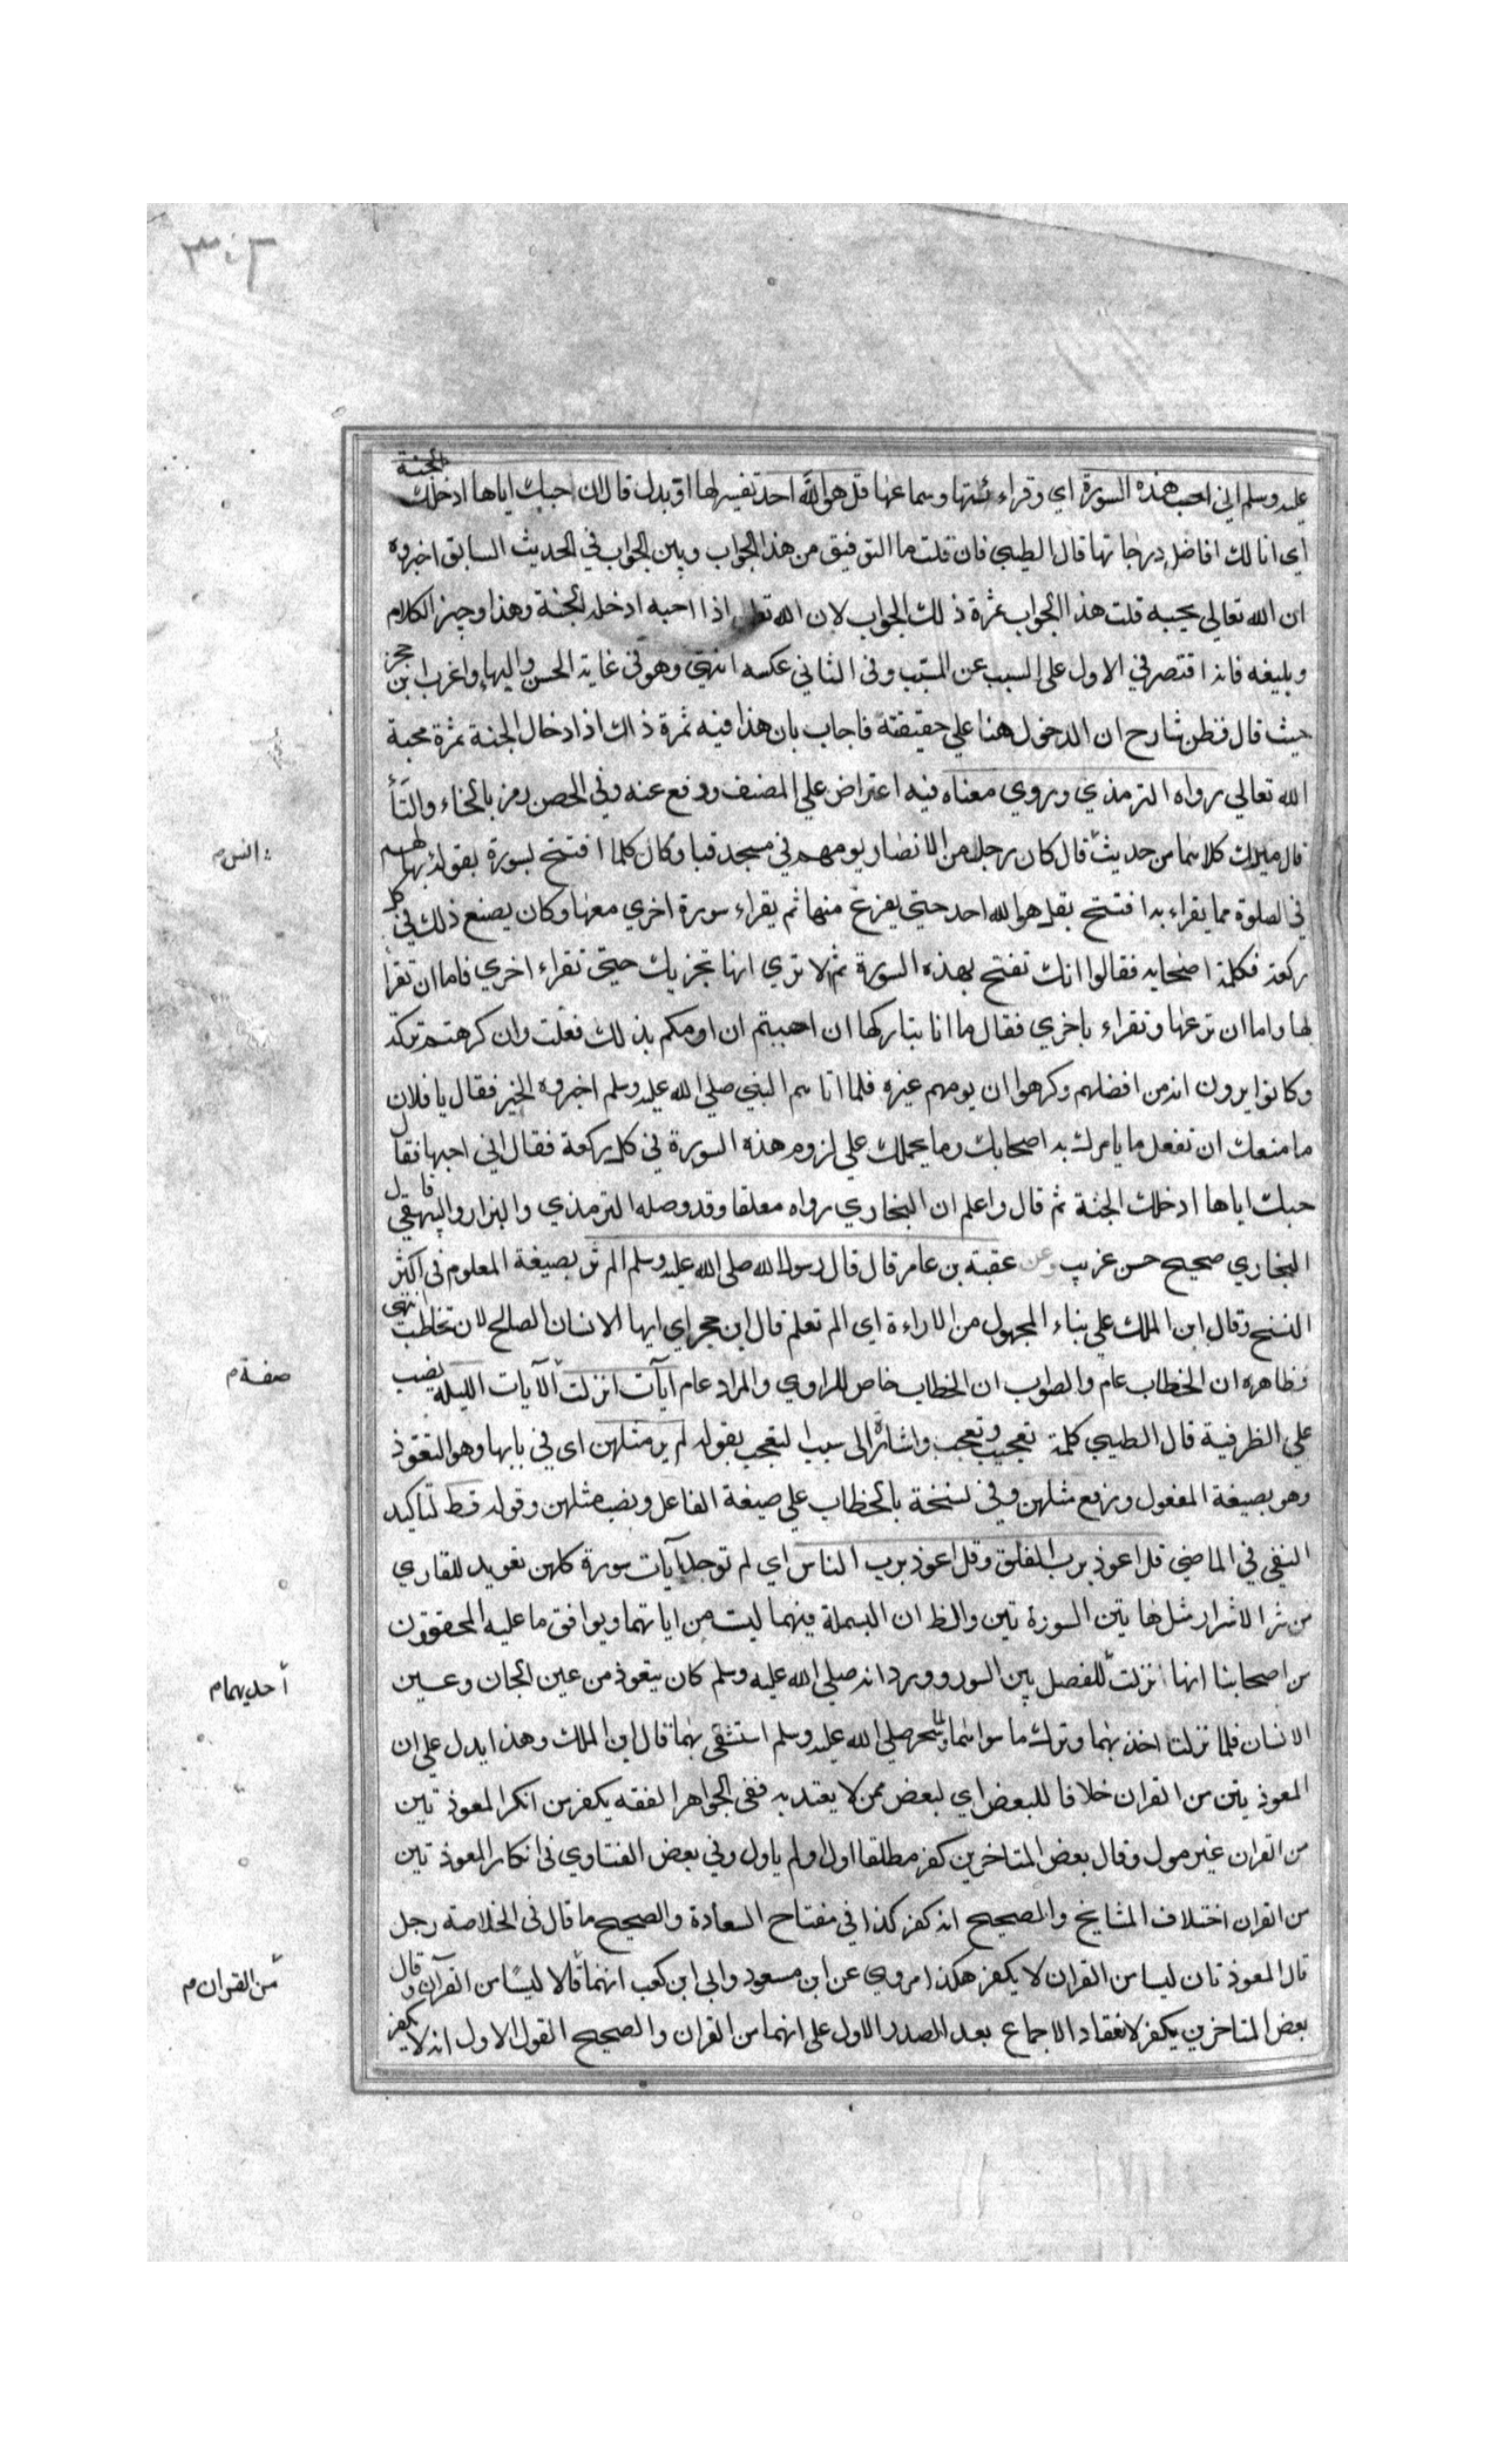 ٣٠٢
عليه وسلم اني احب هذه السورة اي وقراءتها وسماعها قل هو الله احد تفسير لها او بدل قال ان حبك اياها ادخلك الجنة
اي انالك افاضل درجاتها قال الطيبي فان قلت ما التوفيق من هذا الجواب وبين الجواب في الحديث السابق اخبروه
ان الله تعالي يحبه قلت هذا الجواب ثمرة ذلك الجواب لان الله تعالى اذا احبه ادخله الجنة وهذا وجيز الكلام
وبليغه فانه اقتصر في الاول على السبب عن المسبب وفى الثاني عكسه انتهى وهو في غاية الحسن والبهاء واغرب ابن حجر
حيث قال فظن شارح ان الدخول هنا علي حقيقته فاجاب بان هذا فيه ثمرة ذاك اذ ادخال الجنة ثمرة محبة
الله تعالي رواه الترمذي وروي معناه فيه اعتراض علي المصنف ودفع عنه وفي الحصن رمز بالخاء والتاء
قال ميرك كلاهما من حديث قال كان رجل من الانصار يومهم في مسجد قبا وكان كلما افتتح بسورة يقولها لهم
انس م
في الصلوة مما يقراء به افتتح بقل هو الله احد حتي يفرغ منها ثم يقراء سورة اخري معها وكان يصنع ذلك في كل
ركعة فكلمه اصحابه فقالوا انك تفتح بهذه السورة ثم لا تري انها تجزيك حتي تقراء اخري فاما ان تقرأ
لها واما ان تدعها وتقراء باخري فقال ما انا بتاركها ان احببتم ان اومكم بذلك فعلت وان كرهتم تركته
وكانوا يرون انه من افضلهم وكرهوا ان يومهم غيره فلما اتاهم النبي صلي الله عليه وسلم اخبروه الخبر فقال يا فلان
ما منعك ان تفعل ما يامرك به اصحابك وما يحملك علي لزوم هذه السورة في كل ركعة فقال اني احبها فقال
حبك اياها ادخلك الجنة ثم قال واعلم ان البخاري رواه معلقا وقد وصله الترمذي والبزار والبيهقي قال
البخاري صحيح حسن غريب وعن عقبة بن عامر قال قال رسول الله صلى الله عليه وسلم الم تر بصيغة المعلوم في اكثر
النسخ وقال ابن الملك علي بناء المجهول من الاراءة اي الم تعلم قال ابن حجر اي ايها الانسان الصالح لان تخاطب انتهى
فظاهره ان الخطاب عام والصواب ان الخطاب خاص للراوي والمراد عام آيآت انزلت الآيات الليلة نصب
صفة م
علي الظرفية قال الطيبي كلمة تعجيب وتعجب واشارة الى سبب التعجب بقوله لم ير مثلهن اى في بابها وهو التعوذ
وهو بصيغة المفعول ورفع مثلهن وفي نسخة بالخطاب علي صيغة الفاعل ونصب مثلهن وقوله قط لتاكيد
النفي في الماضي قل اعوذ برب الفلق وقل اعوذ برب الناس اي لم توجد آيات سورة كلهن تعويد للقاري
من شر الاشرار مثل هاتين السورتين والظ ان البسملة فيهما ليست من اياتهما ويوافق ما عليه المحققون
من اصحابنا انها انزلت للفصل بين السور وورد انه صلي الله عليه وسلم كان يتعوذ من عين الجان وعين
احديهما م
الانسان فلما نزلت اخذ بهما وترك ما سواهما ولما سحر صلي الله عليه وسلم استشفى بهما قال ابن الملك وهذا يدل على ان
المعوذتين من القران خلافا للبعض اي لبعض ممن لا يعتد به ففي الجواهر الفقه يكفر من انكر المعوذتين
من القران غير مول وقال بعض المتاخرين كفر مطلقا اول او لم ياول وفي بعض الفتاوي في انكار المعوذتين
من القران اختلاف المشايخ والصحيح انه كفر كذا في مفتاح السعادة والصحيح ما قال في الخلاصة رجل
قال المعوذتان ليسا من القران لا يكفر هكذا مروي عن ابن مسعود وابي ابن كعب انهما قالا ليسا من القرآن وقال
من القران م
بعض المتاخرين يكفر لانعقاد الاجماع بعد الصدر الاول على انهما من القران والصحيح القول الاول انه لا يكفر